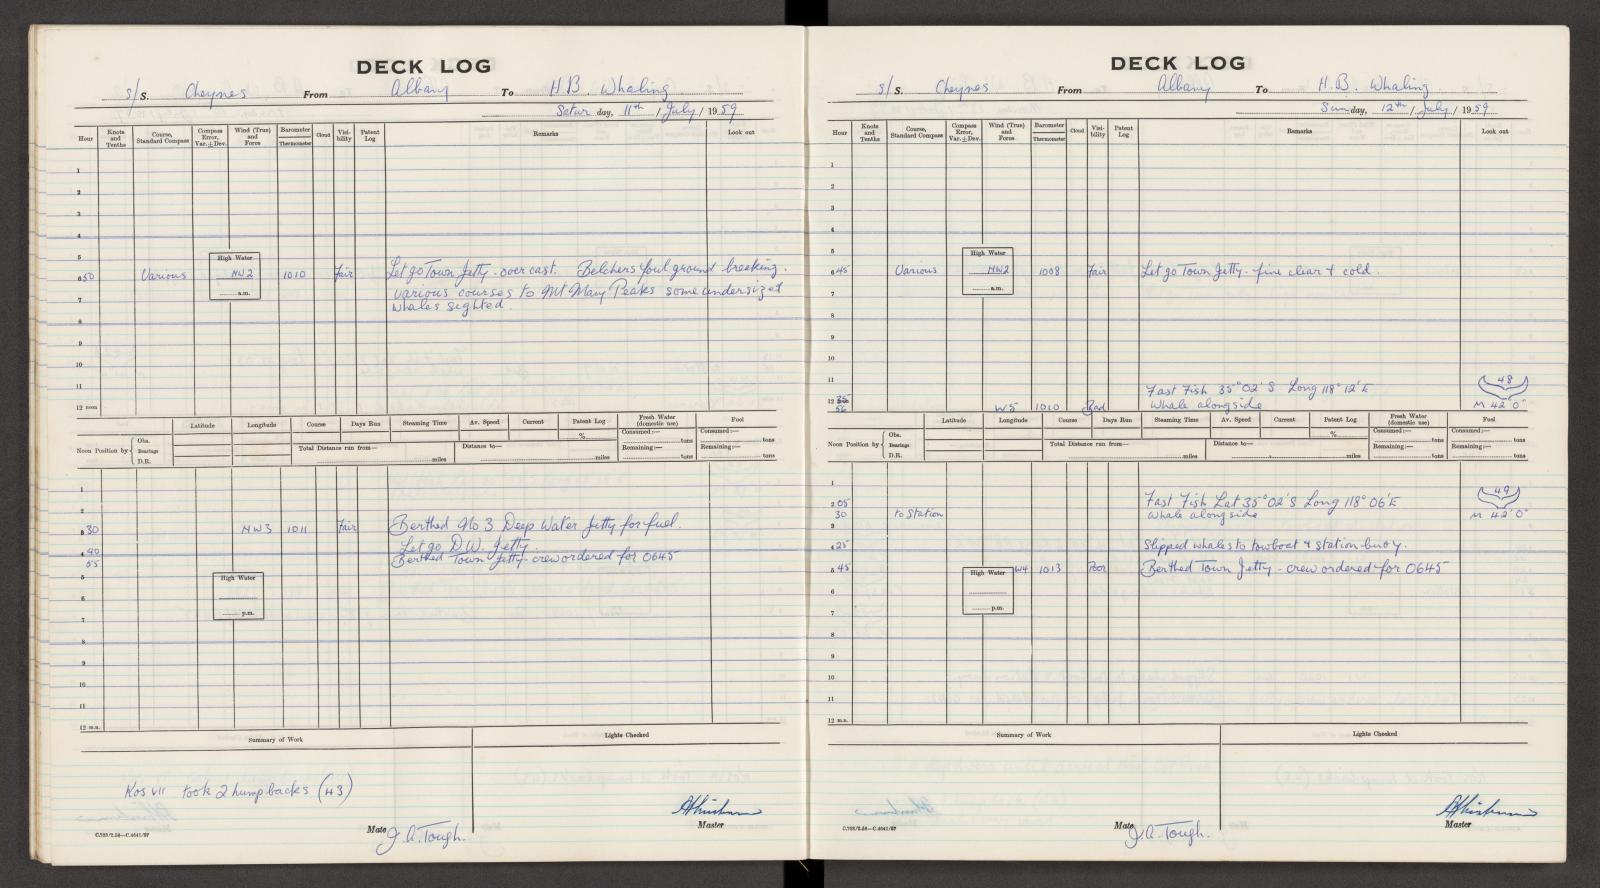 DECK LOG
s/S. Cheynes From Albany To H.B. Whaling
Satur day, 11th / July / 1959
Hour Knots and Tenths Course, Standard Compass Compass Error, Var. ± Dev. Wind (True) and Force Barometer Thermometer Cloud Visibility Patent Log Remarks Look out
1
2
3
4
5 High Water
6 50 Various NW2 1010 Fair Let go Town Jetty - overcast. Belchers foul ground breaking.
7 a.m. various courses to Mt Many Peaks some undersized
whales sighted.
8
9
10
11
12 noon
Latitude Longitude Course Days Run Steaming Time Av. Speed Current Patent Log Fresh Water (domestic use) Fuel
Noon Position by Obs. Bearings D.R. Total Distance run from— miles Distance to— miles % Consumed:— tons Remaining:— tons Consumed:— tons Remaining:— tons
1
2
3 30 NW3 1011 Fair Berthed No 3 Deep Water Jetty for fuel.
40 Let go D.W. Jetty.
4 55 Berthed Town Jetty - crew ordered for 0645
5 High Water
6
7 p.m.
8
9
10
11
12 m.n.
Summary of Work Lights Checked
Kos VII took 2 humpbacks (43)
Mate J.A. Tough. Master
C.723/2.58—C.4641/57
DECK LOG
s/S. Cheynes From Albany To H.B. Whaling
Sun day, 12th / July / 1959
Hour Knots and Tenths Course, Standard Compass Compass Error, Var. ± Dev. Wind (True) and Force Barometer Thermometer Cloud Visibility Patent Log Remarks Look out
1
2
3
4
5 High Water
6 45 Various NW2 1008 Fair Let go Town Jetty - fine clear & cold.
7 a.m.
8
9
10
11 Fast Fish 35°02'S Long 118°12'E 48
12 noon 56 W5 1010 Bad Whale alongside M 42'0"
Latitude Longitude Course Days Run Steaming Time Av. Speed Current Patent Log Fresh Water (domestic use) Fuel
Noon Position by Obs. Bearings D.R. Total Distance run from— miles Distance to— miles % Consumed:— tons Remaining:— tons Consumed:— tons Remaining:— tons
1
2 05 Fast Fish Lat 35°02'S Long 118°06'E 49
30 to Station Whale alongside M 42'0"
3
4 25 Slipped whales to towboat & station buoy.
5 45 High Water W4 1013 Poor Berthed Town Jetty - crew ordered for 0645
6
7 p.m.
8
9
10
11
12 m.n.
Summary of Work Lights Checked
Mate J.A. Tough. Master
C.723/2.58—C.4641/57